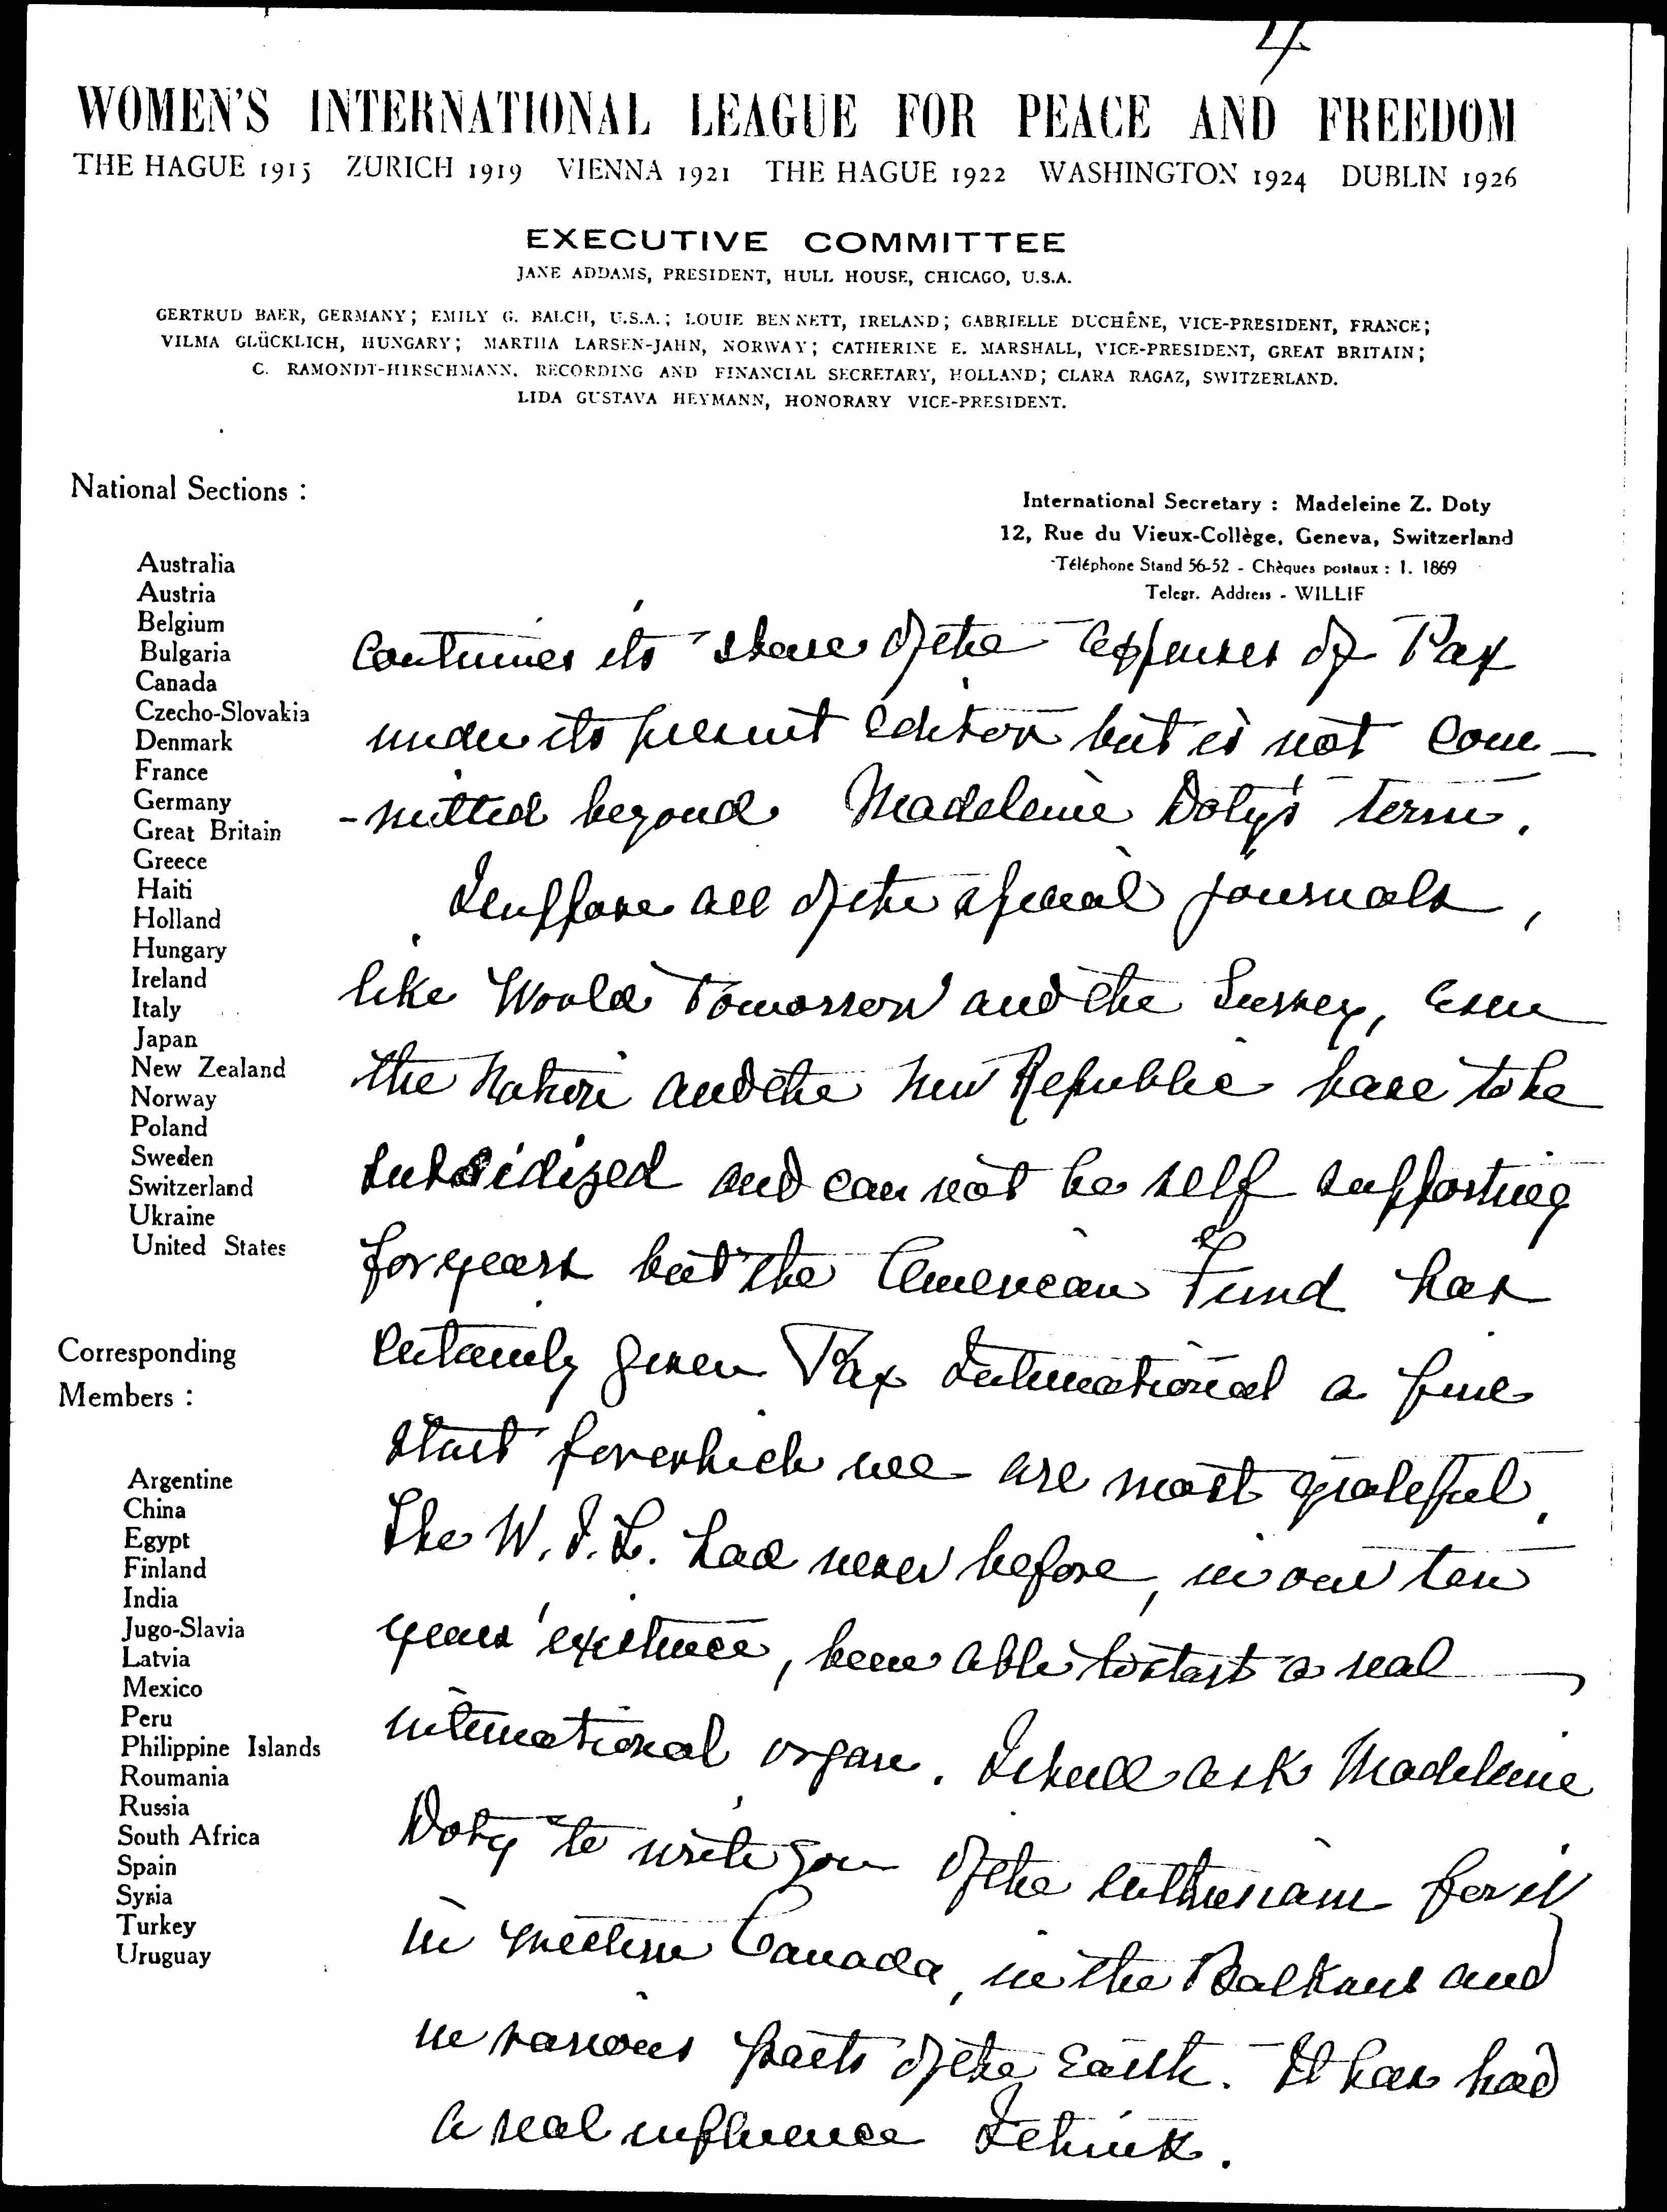 4
WOMEN'S INTERNATIONAL LEAGUE FOR PEACE AND FREEDOM
THE HAGUE 1915 ZURICH 1919 VIENNA 1921 THE HAGUE 1922 WASHINGTON 1924 DUBLIN 1926
EXECUTIVE COMMITTEE
JANE ADDAMS, PRESIDENT, HULL HOUSE, CHICAGO, U.S.A.
GERTRUD BAER, GERMANY; EMILY G. BALCH, U.S.A.; LOUIE BENNETT, IRELAND; GABRIELLE DUCHÊNE, VICE-PRESIDENT, FRANCE;
VILMA GLÜCKLICH, HUNGARY; MARTHA LARSEN-JAHN, NORWAY; CATHERINE E. MARSHALL, VICE-PRESIDENT, GREAT BRITAIN;
C. RAMONDT-HIRSCHMANN, RECORDING AND FINANCIAL SECRETARY, HOLLAND; CLARA RAGAZ, SWITZERLAND.
LIDA GUSTAVA HEYMANN, HONORARY VICE-PRESIDENT.
National Sections :
Australia
Austria
Belgium
Bulgaria
Canada
Czecho-Slovakia
Denmark
France
Germany
Great Britain
Greece
Haiti
Holland
Hungary
Ireland
Italy
Japan
New Zealand
Norway
Poland
Sweden
Switzerland
Ukraine
United States
Corresponding
Members :
Argentine
China
Egypt
Finland
India
Jugo-Slavia
Latvia
Mexico
Peru
Philippine Islands
Roumania
Russia
South Africa
Spain
Syria
Turkey
Uruguay
International Secretary : Madeleine Z. Doty
12, Rue du Vieux-Collège, Geneva, Switzerland
Téléphone Stand 56-52 - Chèques postaux : I. 1869
Telegr. Address - WILLIF
Continues its share of the expenses of Pax
under its present editor but is not com-
-mitted beyond Madeleine Doty's term.
I suppose all of the special journals,
like World Tomorrow and the Survey, even
the Nation and the New Republic have to be
subsidized and can not be self supporting
for years but the American Fund has
certainly given Pax International a fine
start for which we are most grateful.
The W.I.L. had never before, in our ten
years' existence, been able to start a real
international organ. I shall ask Madeleine
Doty to write you of the enthusiasm for it
in western Canada, in the Balkans and
in various parts of the earth. It has had
a real influence I think.